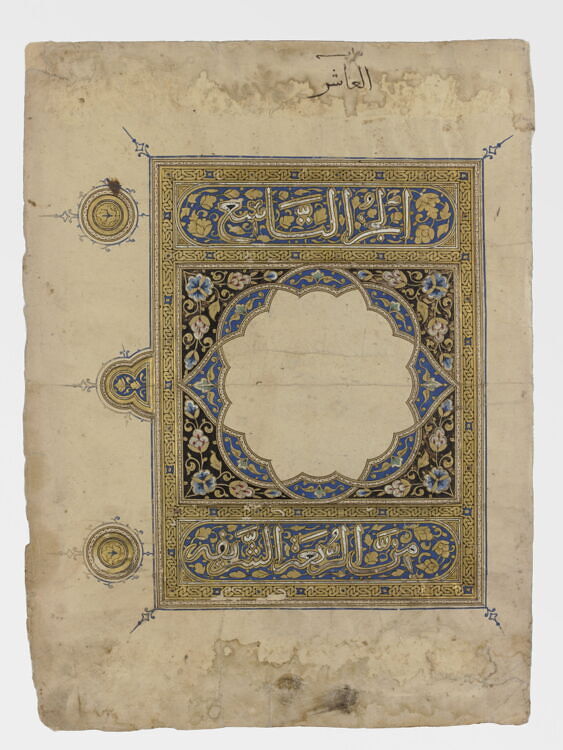 العاشر
الجزُ التَّاسِع
مِنَ الرَّبعَة الشَّرِيفَه